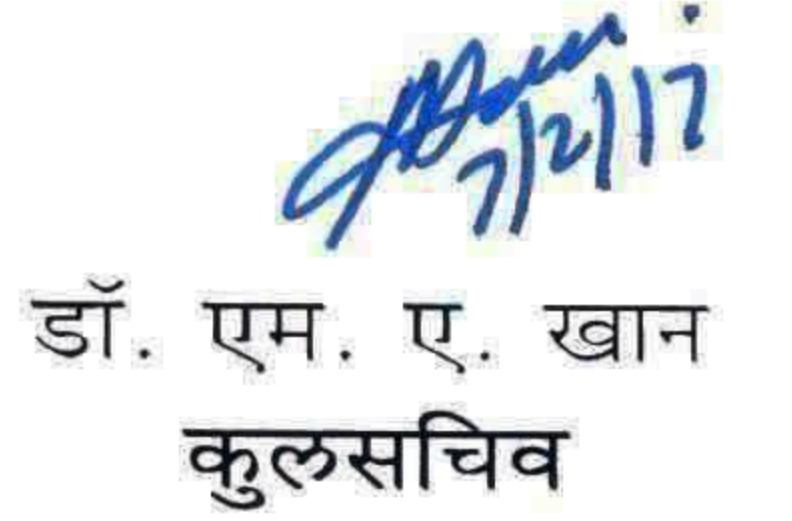 7/2/17
डॉ. एम. ए. खान
कुलसचिव